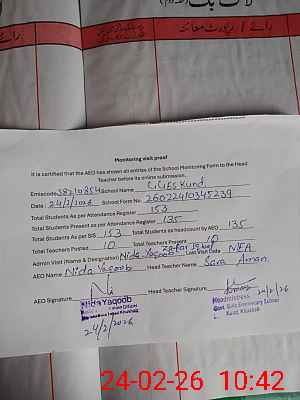 رائے / رپورٹ معائنہ
Monitoring visit proof
It is certified that the AEO has shown all entries of the School Monitoring Form to the Head
Teacher before its online submission.
Emiscode 38210854 School Name GGES Kund
Date: 24/2/2026 School Form No: 26022410345239
Total Students as Per Attendance Register 153
Total Students Present as per Attendance Register 135
Total Students As per SIS 153 Total Students as headcount by AEO 135
Total Teachers Posted 10 Total Teachers Present 10
Admin Visit (Name & Designation) Zafar Iqbal Last Visit Date
AEO Name Nida Yaqoob Head Teacher Name Sara Aman
AEO Signature Head Teacher Signature
Nida Yaqoob
24/2/2026
Headmistress
Govt. Girls Elementary School
Kund, Khushab
24/2/26
24-02-26 10:42